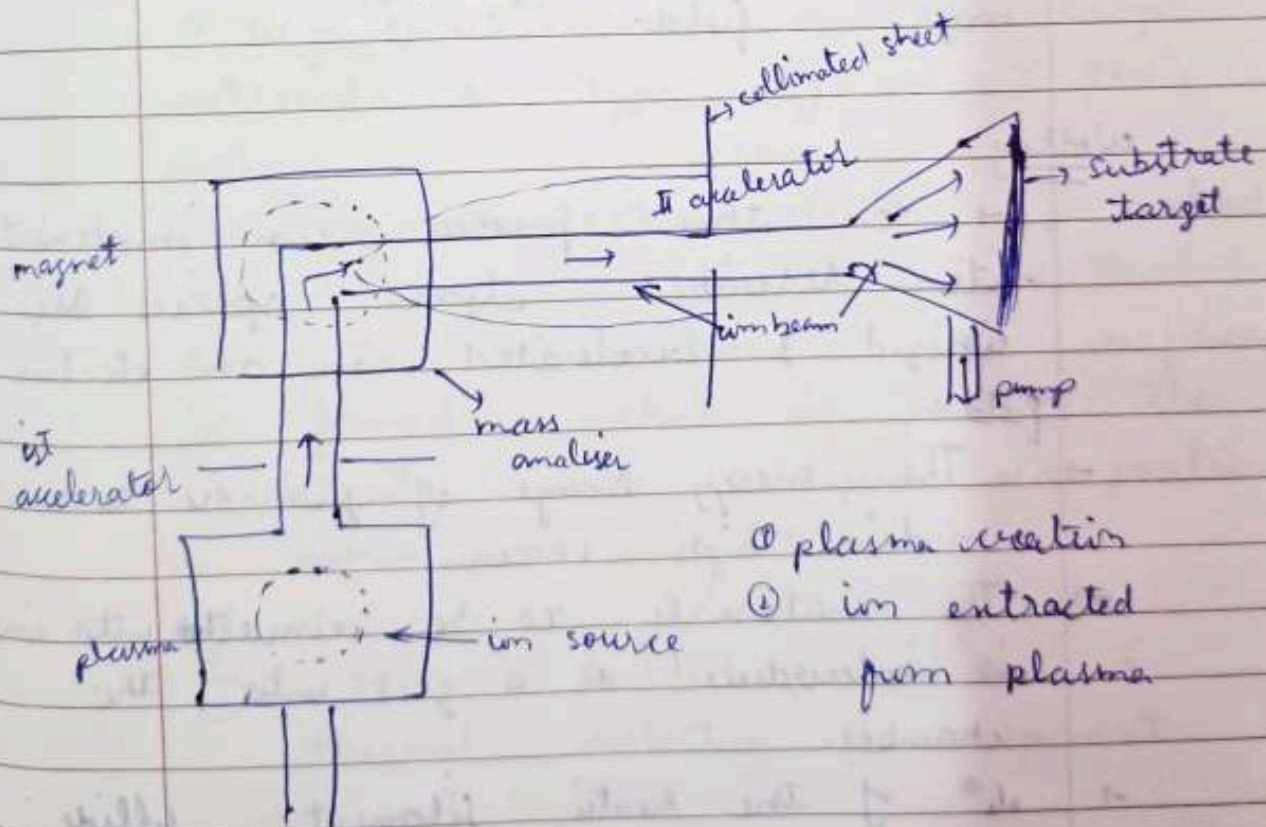 collimated sheet
II acalerator
substrate
target
magnet
ionbeam
pump
mass
analiser
ist
accelerator
① plasma creation
② ion extracted
from plasma
plasma
ion source